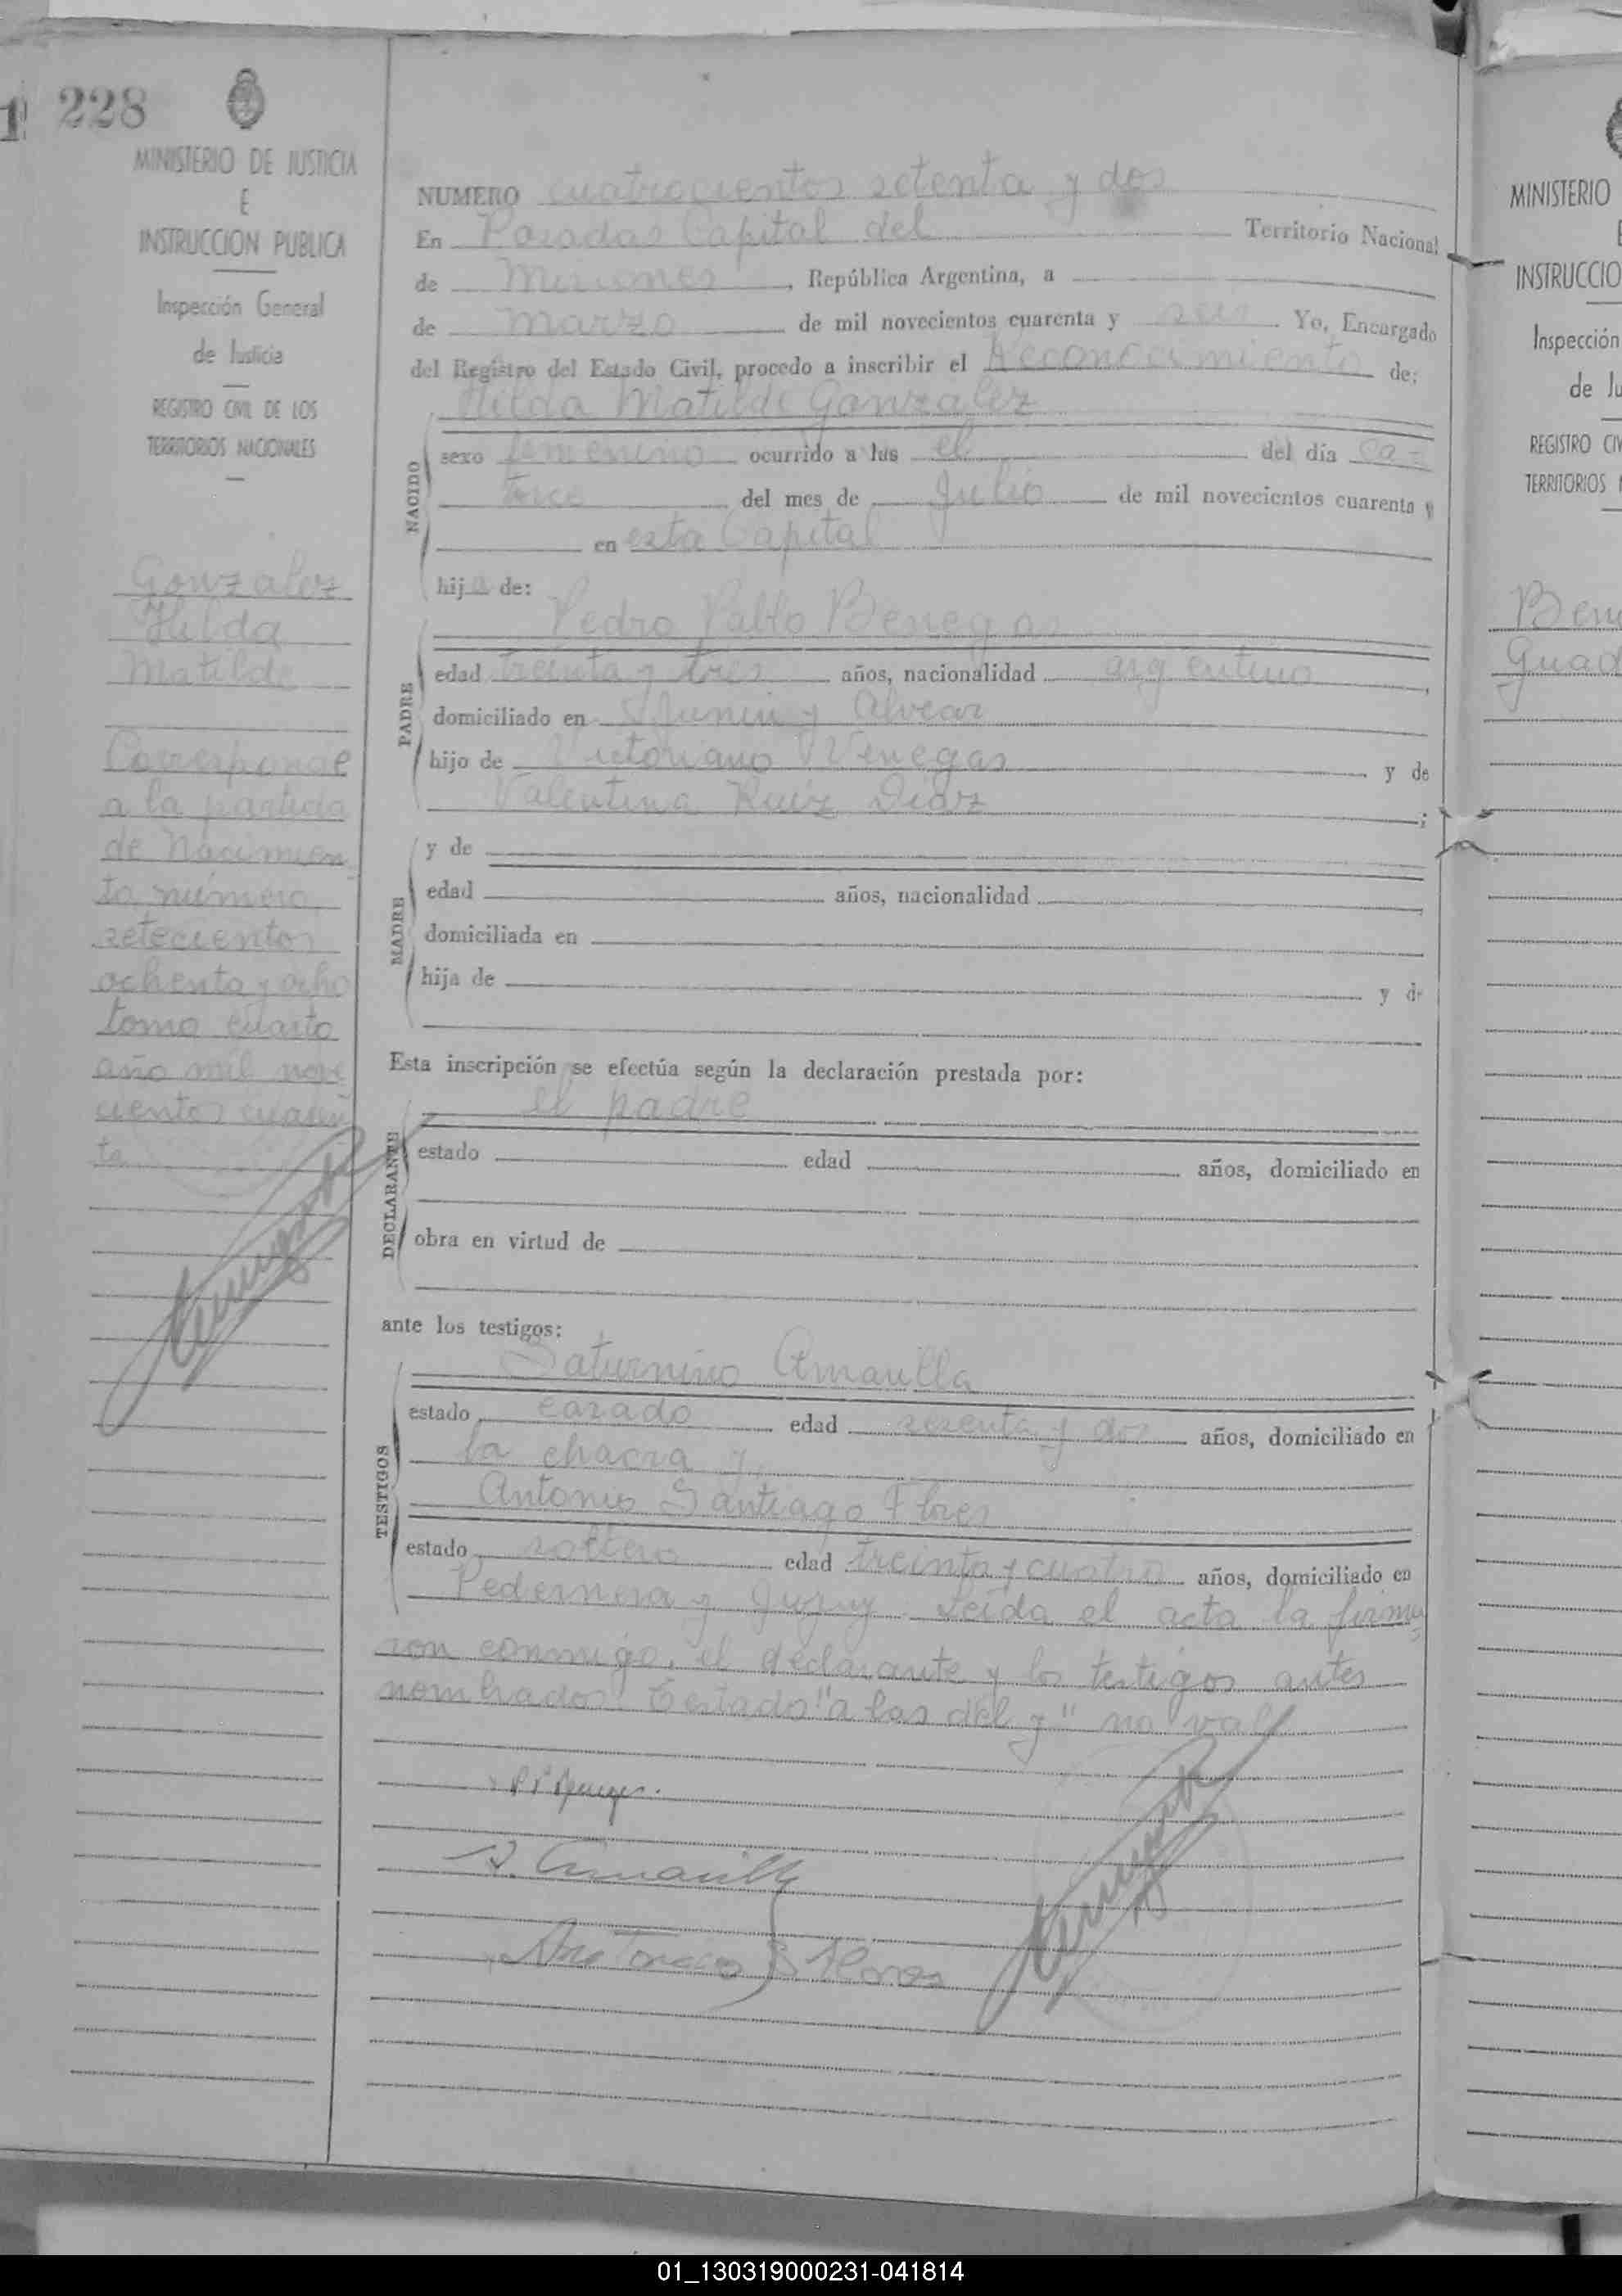 1 228
MINISTERIO DE JUSTICIA
E
INSTRUCCION PUBLICA
Inspección General
de Justicia
REGISTRO CIVIL DE LOS
TERRITORIOS NACIONALES
Gonzalez
Hilda
Matilde
Corresponde
a la partida
de Nacimien
to número
setecientos
ochenta y ocho
tomo cuarto
año mil nove
cientos cuaren
ta
NUMERO cuatrocientos setenta y dos
En Posadas Capital del Territorio Nacional
de Misiones, República Argentina, a
de Marzo de mil novecientos cuarenta y seis Yo, Encargado
del Registro del Estado Civil, procedo a inscribir el Reconocimiento de:
Hilda Matilde Gonzalez
NACIDO
sexo femenino ocurrido a las el del día ca-
torce del mes de Julio de mil novecientos cuarenta y
en esta Capital
hija de:
Pedro Pablo Benegas
PADRE
edad treinta y tres años, nacionalidad argentino,
domiciliado en Junin y Alvear
hijo de Victoriano Venegas y de
Valentina Ruiz Diaz;
MADRE
y de
edad años, nacionalidad
domiciliada en
hija de y de
Esta inscripción se efectúa según la declaración prestada por:
el padre
DECLARANTE
estado edad años, domiciliado en
obra en virtud de
ante los testigos:
Saturnino Amarilla
TESTIGOS
estado casado edad sesenta y dos años, domiciliado en
la chacra y
Antonio Santiago Flores
estado soltero edad treinta y cuatro años, domiciliado en
Pedernera y Jujuy. Leida el acta la firma
ron conmigo, el declarante y los testigos antes
nombrados. Testado "a las del y" no vale
S. Amarilla
Antonio S Flores
MINISTERIO
E
INSTRUCCIO
Inspección
de Ju
REGISTRO CIV
TERRITORIOS
Bene
Guad
01_130319000231-041814